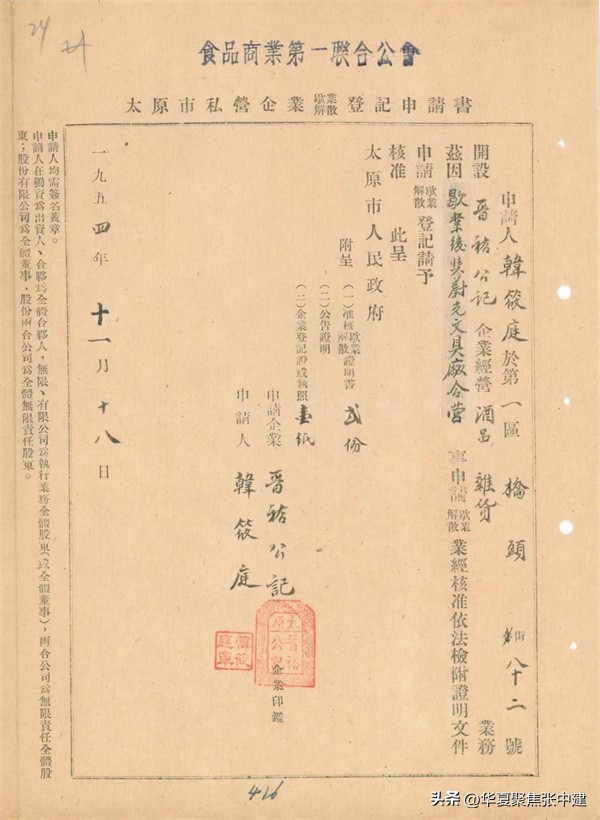 24
食品商業第一联合公會
太原市私營企業歇業解散登記申請書
申請人韓筱庭於第一區橋頭街八十二號
開設晋裕公記企業經營酒呂雜货業務
茲因歇業後與蔚光文具廠合营事申請歇業解散業經核准依法檢附證明文件
申請歇業解散登記請予
核准 此呈
太原市人民政府
附呈(一)准核歇業解散證明書 弍份
(二)公告證明
(三)企業登記證或執照 壹紙
申請企業 晋裕公記 企業印鑑
申請人 韓筱庭
一九五四年十一月十八日
申請人均需簽名蓋章。
申請人在獨資爲出資人、合夥爲全體合夥人,無限、有限公司爲執行業務全體股東(或全體董事),兩合公司爲無限責任全體股
東;股份有限公司爲全體董事,股份兩合公司爲全體無限責任股東。
太原晋裕公記
416
头条 @华夏聚焦张中建